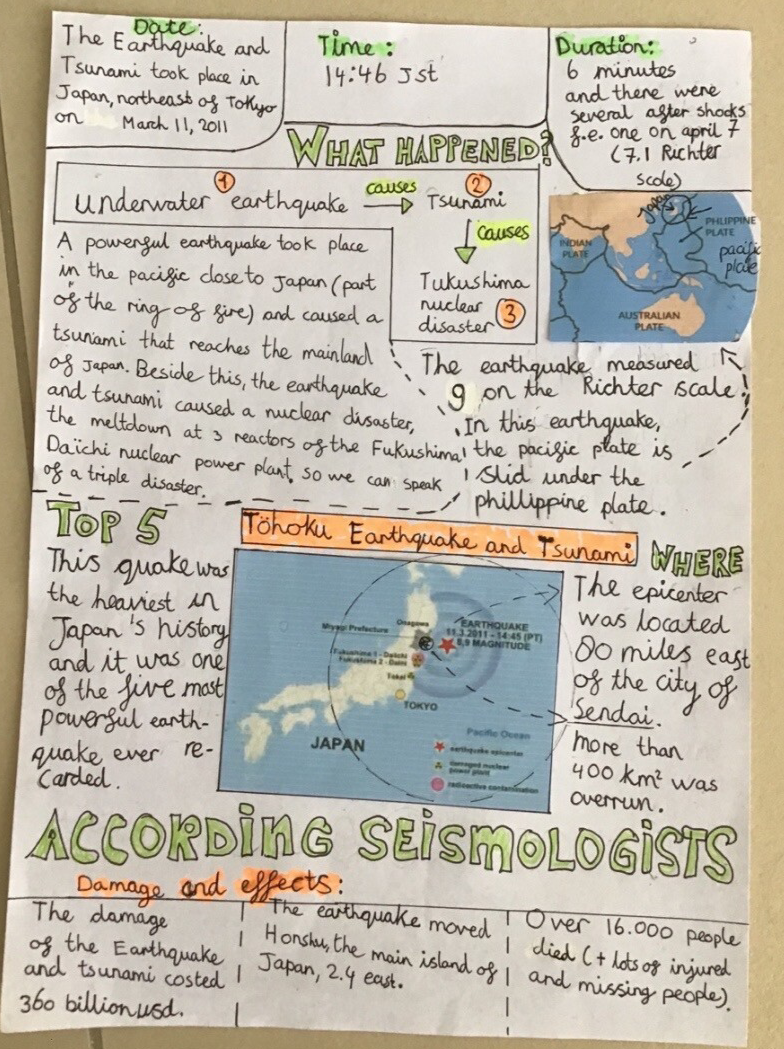 Date:
The Earthquake and
Tsunami took place in
Japan, northeast of Tokyo
on March 11, 2011
Time:
14:46 Jst
Duration:
6 minutes
and there were
several after shocks
f.e. one on april 7
(7.1 Richter
scale)
WHAT HAPPENED?
1
underwater earthquake
causes
2
Tsunami
causes
Tukushima
nuclear
disaster 3
A powerful earthquake took place
in the pacific close to Japan (part
of the "ring of fire) and caused a
tsunami that reaches the mainland
of Japan. Beside this, the earthquake
and tsunami caused a nuclear disaster,
the meltdown at 3 reactors of the Fukushima
Daïchi nuclear power plant. so we can speak
of a triple disaster.
Japan
PHLIPPINE
PLATE
INDIAN
PLATE
pacific
plate
AUSTRALIAN
PLATE
The earthquake measured
9 on the Richter scale.
In this earthquake,
the pacific plate is
slid under the
phillippine plate.
TOP 5
This quake was
the heaviest in
Japan's history
and it was one
of the five most
powerful earth-
quake ever re-
carded.
Töhoku Earthquake and Tsunami
Miyagi Prefecture
Onagawa
EARTHQUAKE
11.3.2011 - 14:45 (PT)
8,9 MAGNITUDE
Fukushima 1 - Daiichi
Fukushima 2 - Daini
Tokai
TOKYO
JAPAN
Pacific Ocean
earthquake epicenter
damaged nuclear
power plant
radioactive contamination
WHERE
The epicenter
was located
80 miles east
of the city of
Sendai.
more than
400 km² was
overrun.
ACCORDING SEISMOLOGISTS
Damage and effects:
The damage
of the Earthquake
and tsunami costed
360 billion usd.
The earthquake moved
Honshu, the main island of
Japan, 2.4 east.
Over 16.000 people
died (+ lots of injured
and missing people).